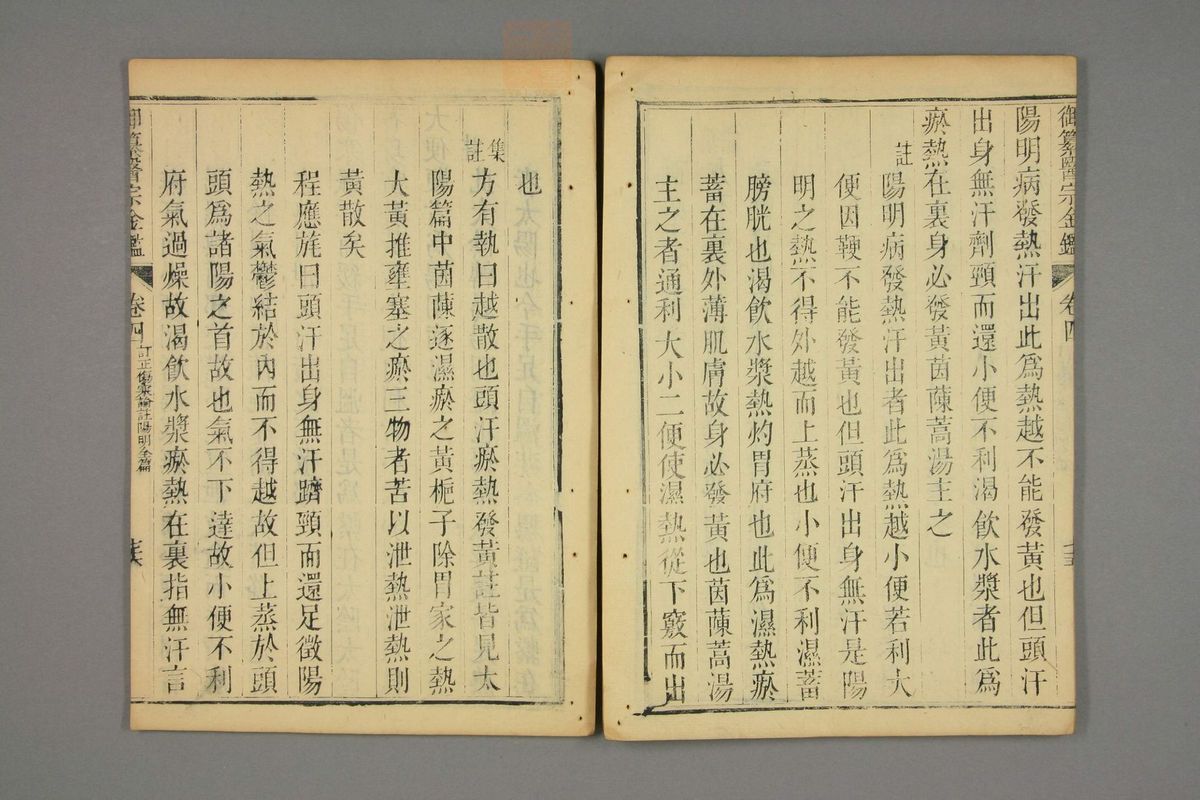 御纂醫宗金鑑 卷四
陽明病發熱汗出此爲熱越不能發黃也但頭汗
出身無汗劑頸而還小便不利渴飲水漿者此爲
瘀熱在裏身必發黃茵蔯蒿湯主之
註
陽明病發熱汗出者此爲熱越小便若利大
便因鞕不能發黃也但頭汗出身無汗是陽
明之熱不得外越而上蒸也小便不利濕蓄
膀胱也渴飲水漿熱灼胃府也此爲濕熱瘀
蓄在裏外薄肌膚故身必發黃也茵蔯蒿湯
主之者通利大小二便使濕熱從下竅而出
也
集註
方有執曰越散也頭汗瘀熱發黃註皆見太
陽篇中茵蔯逐濕瘀之黃梔子除胃家之熱
大黃推壅塞之瘀三物者苦以泄熱泄熱則
黃散矣
程應旄曰頭汗出身無汗躋頸而還足徵陽
熱之氣鬱結於內而不得越故但上蒸於頭
頭爲諸陽之首故也氣不下達故小便不利
府氣過燥故渴飲水漿瘀熱在裏指無汗言
御纂醫宗金鑑 卷四 訂正傷寒論註陽明全篇